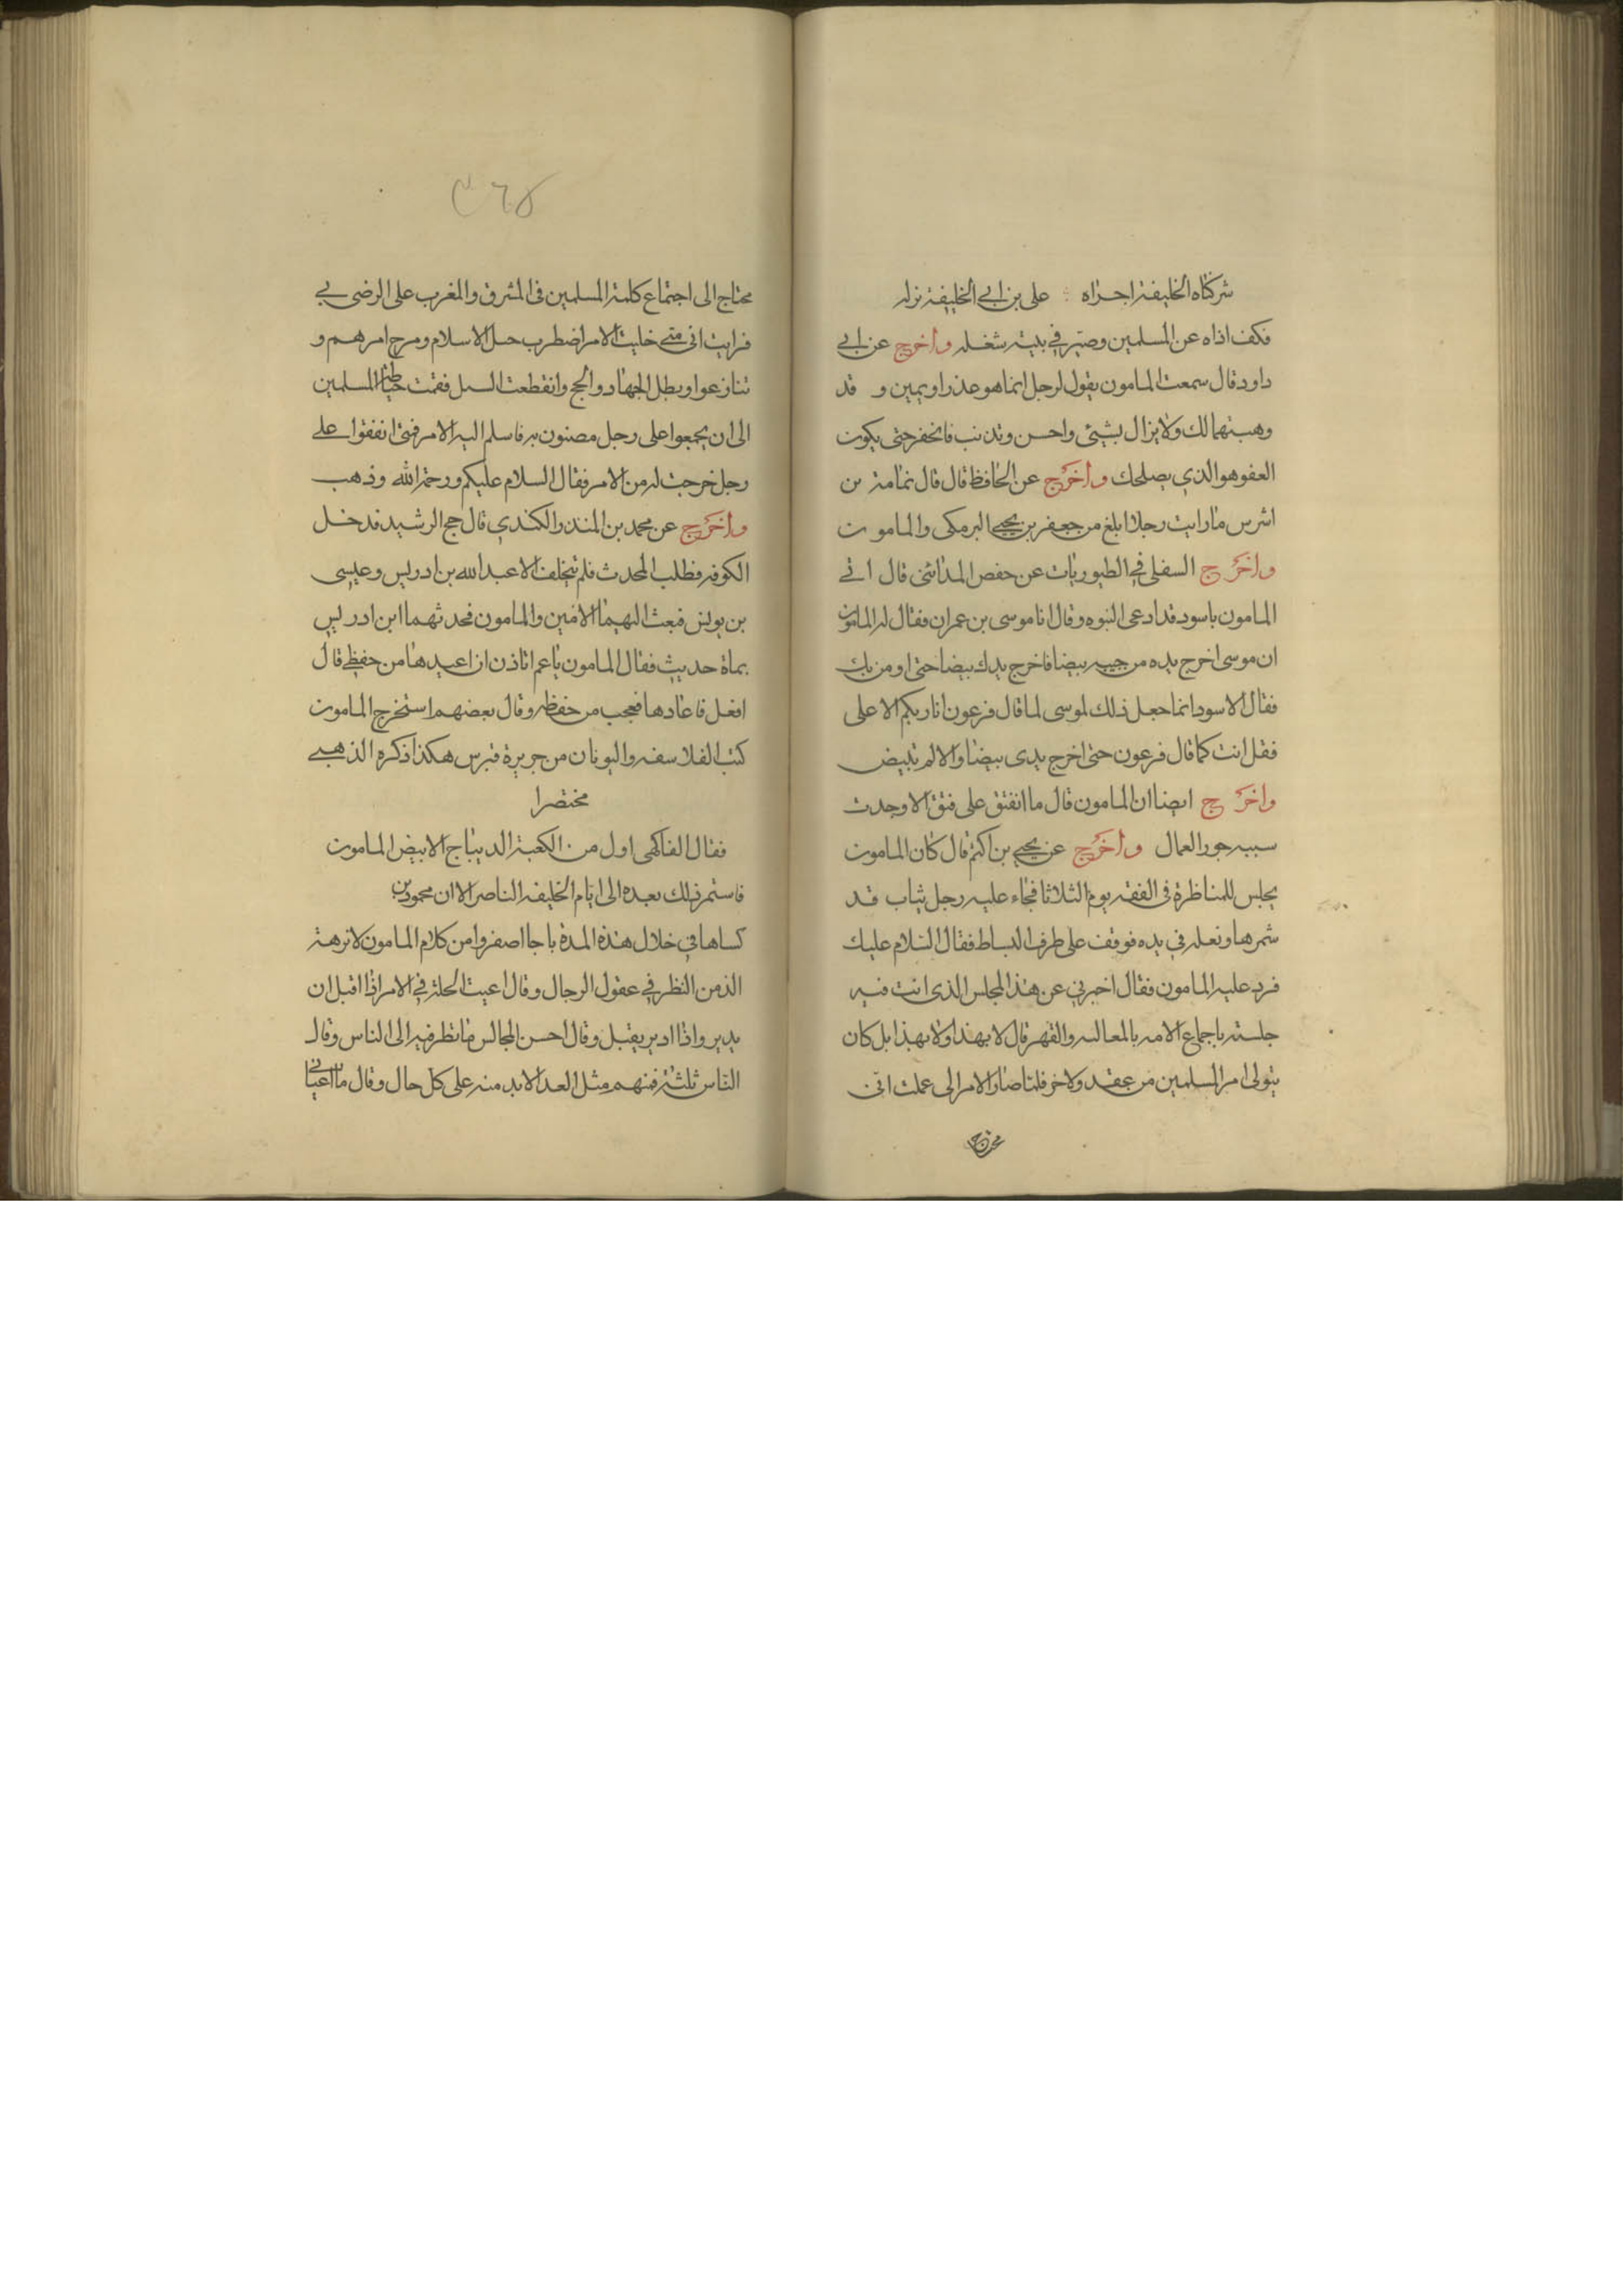 شركناه الخليفة اجراه : على بن ابي الخليفة نزله
فكف اذاه عن المسلمين وصير في بيته شغله واخرج عن ابي
داود قال سمعت المامون يقول لرجل انما هو عذر او يمين و قد
وهبتهما لك ولا يزال يشيئ واحسن وتذنب فانخفر حتى يكون
العفو هو الذي يصلحك واخرج عن الحافظ قال قال ثمامة بن
اشرس ما رايت رجلا ابلغ من جعفر بن يحيى البرمكى والمامون
واخرج السفلى في الطيوريات عن حفص المدائنى قال اتى
المامون باسود قد ادعى النبوه وقال انا موسى بن عمران فقال له المامون
ان موسى اخرج يده من جيبه بيضا فاخرج يدك بيضا حتى اومن بك
فقال الاسود انما جعل ذلك لموسى لما قال فرعون انا ربكم الاعلى
فقل انت كما قال فرعون حتى اخرج يدى بيضا والا لم تبيض
واخرج ايضا ان المامون قال ما انفتق على فتق الا وجدت
سببه جور العمال واخرج عن يحيى بن اكثم قال كان المامون
يجلس للمناظرة فى الفقه يوم الثلاثا فجاء عليه رجل ثياب قد
شمرها ونعله في يده فوقف على طرف البساط فقال السلام عليك
فرد عليه المامون فقال اخبرني عن هذا المجلس الذى انت فيه
جلسته باجماع الامه بالمعالبه والقهر قال لا بهذا ولا بهذا بل كان
يتولى امر المسلمين من عقد ولاخر فلما صار الامر الى عملت انى
محتاج الى اجتماع كلمة المسلمين فى المشرق والمغرب على الرضى بى
فرايت انى متى خليت الامر اضطرب حبل الاسلام ومرج امرهم و
تنازعوا وبطل الجهاد والحج وانقطعت السبل فقمت حياطة المسلمين
الى ان يجمعوا على رجل مصنون به فاسلم اليه الامر فمتى انفقوا على
رجل خرجت له من الامر فقال السلام عليكم ورحمة الله وذهب
واخرج عن محمد بن المنذر الكندي قال حج الرشيد فدخل
الكوفه فطلب المحدث فلم يتخلف الا عبد الله بن ادريس وعيسى
بن يونس فبعث اليهما الامين والمامون فحدثهما ابن ادريس
بماة حديث فقال المامون يا عم اتاذن ان اعيدها من حفظي قال
افعل فاعادها فعجب من حفظه وقال بعضهم استخرج المامون
كتب الفلاسفه واليونان من جريرة قبرس هكذا ذكره الذهبى
مختصرا
فقال الفاكهى اول من الكعبة الديباج الابيض المامون
فاستمر ذلك بعده الى ايام الخليفه الناصر الا ان محمود بن
كساها في خلال هذه المدة باجا اصفر وامن كلام المامون لا نرهة
الذ من النظر في عقول الرجال وقال اعيت الحلة في الامر اذا اقبل ان
يدبر واذا ادبر يقبل وقال احسن المجالس ما نظر فيه الى الناس وقال
الناس ثلثة فمنهم مثل العدا لا بد منه على كل حال وقال ما اعيانى